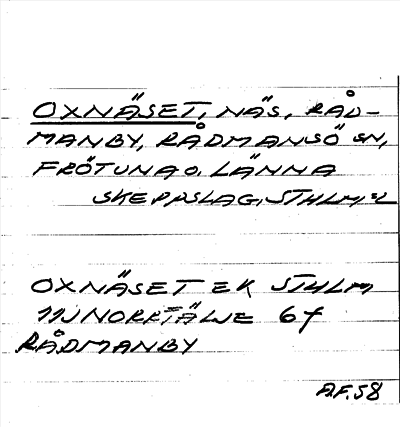 OXNÄSET, NÄS, RÅD-
MANBY, RÅDMANSÖ SN,
FRÖTUNA O. LÄNNA
SKEPPSLAG, STHLM:S L
OXNÄSET EK STHLM
11J NORRTÄLJE 6f
RÅDMANBY
A.F. 58